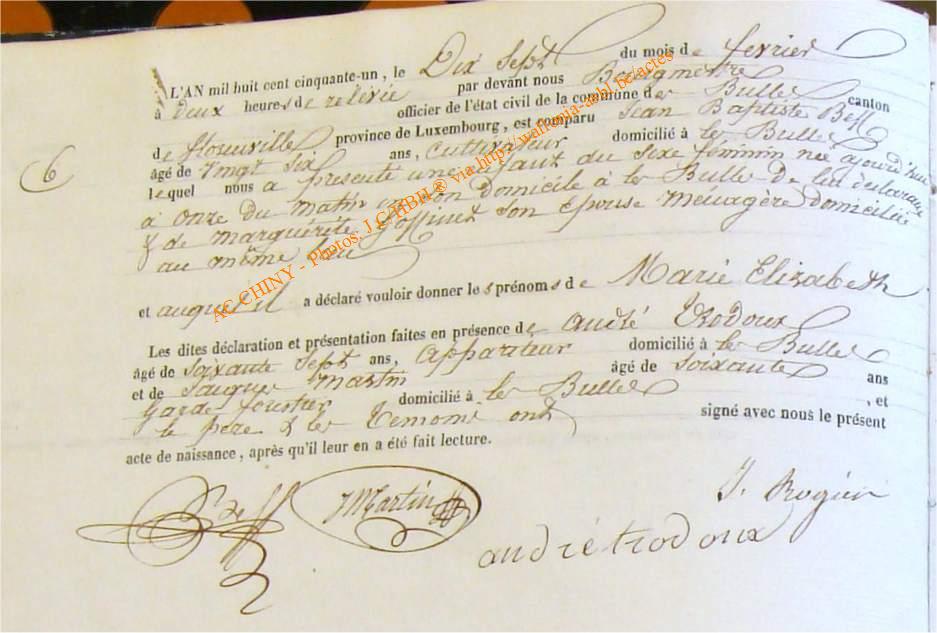 L'AN mil huit cent cinquante-un, le Dix Sept du mois de fevrier
à deux heures de relevée par devant nous Bourgmestre
officier de l'état civil de la commune de Bulles canton
de florenville province de Luxembourg, est comparu Jean Baptiste Beff
âgé de vingt six ans, cultivateur domicilié à les Bulles
lequel nous a présenté une enfant du sexe féminin née aujourd'hui
à onze du matin en son domicile à les Bulles de lui déclarant
& de marguérite Goffinet son Epouse ménagère domiciliée
au même lieu
et auquel il a déclaré vouloir donner les prénoms de Marie Elizabeth
Les dites déclaration et présentation faites en présence de andré trodoux
âgé de soixante sept ans, appariteur domicilié à les Bulles
et de Jacques Martin âgé de soixante ans
Garde forestier domicilié à les Bulles , et
le père & les temoins ont signé avec nous le présent
acte de naissance, après qu'il leur en a été fait lecture.
6
Beff
JMartin
J. Rogier
andré trodoux
AC CHINY - Photos. J.C. HBH® via http://wallonia-asbl.be/actes